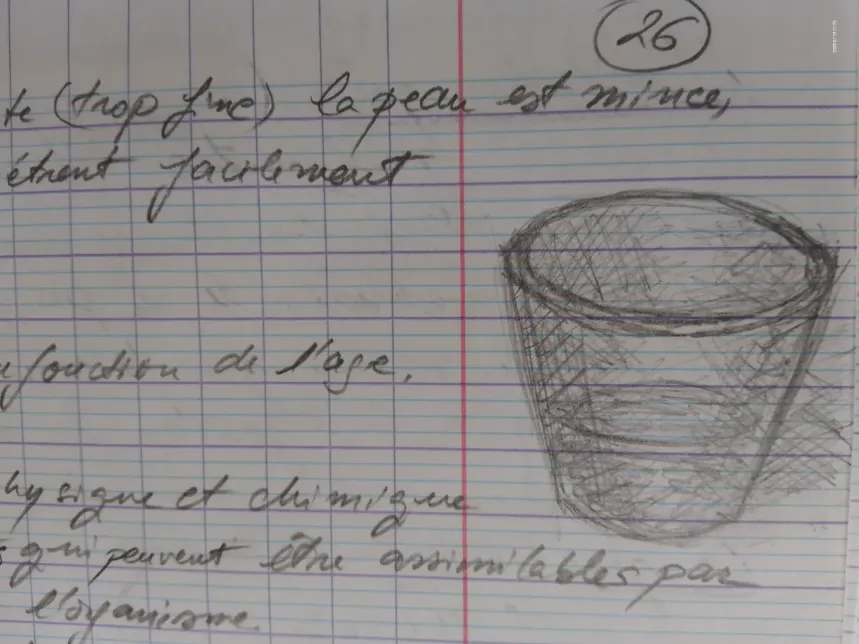 26
te (trop fine) la peau est mince,
étrent facilement
fonction de l'age.
hysique et chimique
s qui peuvent être assimilables par
l'organisme.